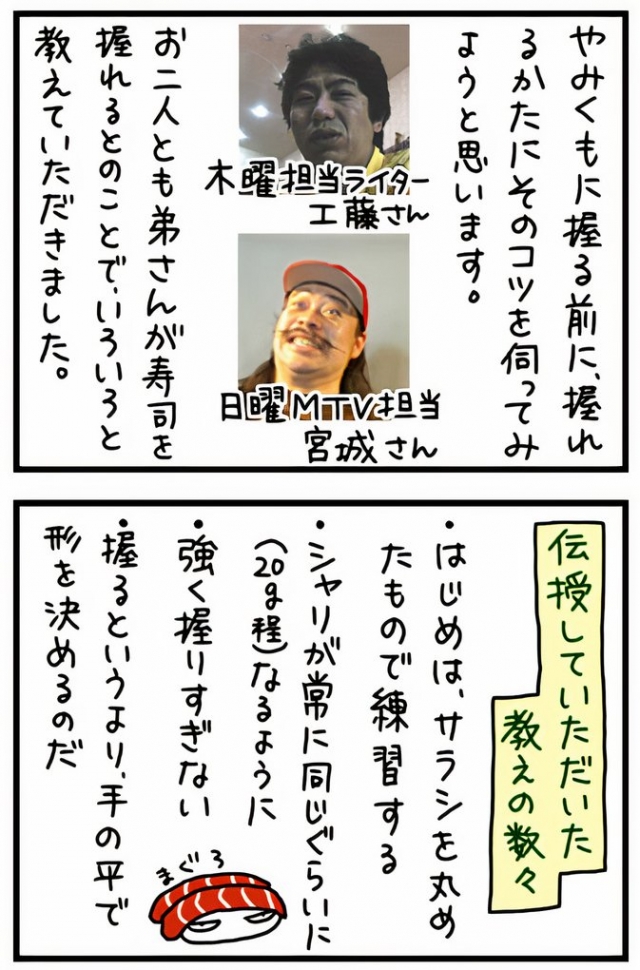 やみくもに握る前に、握れ
るかたにそのコツを伺ってみ
ようと思います。
木曜担当ライター
工藤さん
日曜MTV担当
宮城さん
お二人とも弟さんが寿司を
握れるとのことで、いろいろと
教えていただきました。
伝授していただいた
教えの数々
・はじめは、サラシを丸め
たもので練習する
・シャリが常に同じぐらいに
(20g程)なるように
・強く握りすぎない
・握るというより、手の平で
形を決めるのだ
まぐろ